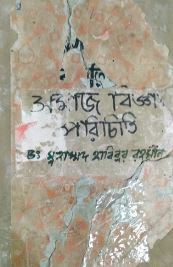 সমাজ বিজ্ঞান
পরিচিতি
ডঃ মুহাম্মদ হাবিবুর রহমান